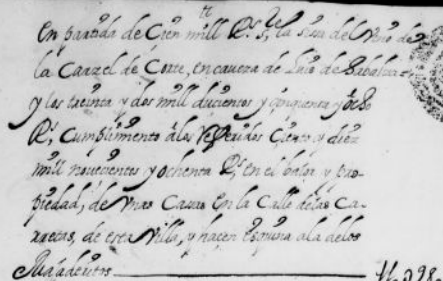 En partida de Cien mill R.s, la sisa del Vino de
la Carzel de Corte, en caueza de
y los treinta y dos mill ducientos y cinquenta y ocho
R.s Cumplimento a los referidos Ciento y diez
mill nouecientos y ochenta R.s en el balor y pro-
piedad, de Vnas Casas en la Calle de las Ca-
rretas, de esta Villa, y hacen esquina a la de los
Majadericos